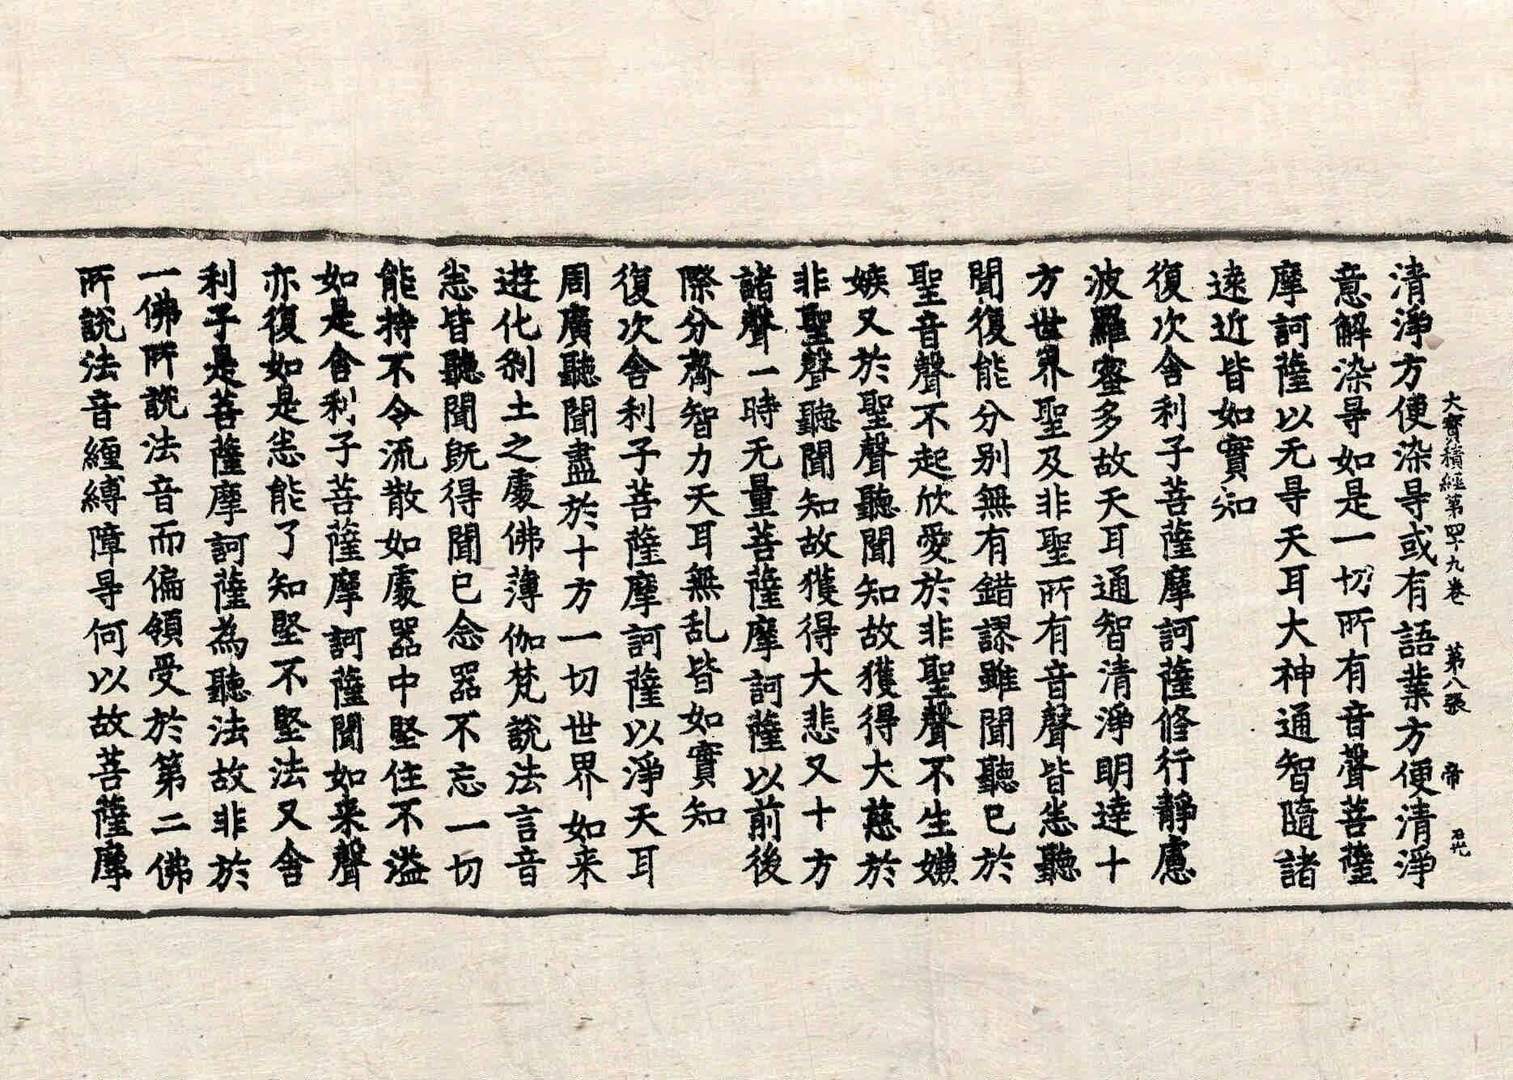 大寶積經第四十九卷　第八張　帝
清淨方便染㝵或有語業方便清淨
意解染㝵如是一切所有音聲菩薩
摩訶薩以无㝵天耳大神通智隨諸
遠近皆如實知
復次舍利子菩薩摩訶薩修行靜慮
波羅蜜多故天耳通智清淨明達十
方世界聖及非聖所有音聲皆悉聽
聞復能分別無有錯謬雖聞聽已於
聖音聲不起欣愛於非聖聲不生嫌
嫉又於聖聲聽聞知故獲得大慈於
非聖聲聽聞知故獲得大悲又十方
諸聲一時无量菩薩摩訶薩以前後
際分齊智力天耳無乱皆如實知
復次舍利子菩薩摩訶薩以淨天耳
周廣聽聞盡於十方一切世界如来
遊化刹土之處佛薄伽梵說法言音
悉皆聽聞既得聞已念器不忘一切
能持不令流散如處器中堅住不溢
如是舍利子菩薩摩訶薩聞如来聲
亦復如是悉能了知堅不堅法又舍
利子是菩薩摩訶薩為聽法故非於
一佛所說法音而偏領受於第二佛
所說法音纏縛障㝵何以故菩薩摩